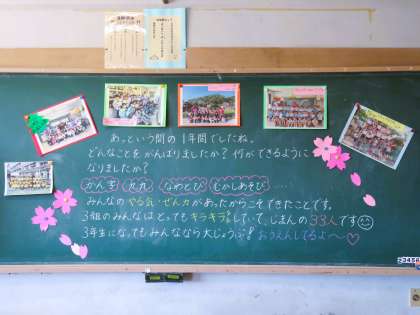 あっという間の1年間でしたね。
どんなことをがんばりましたか？何ができるように
なりましたか？
かん字 九九 なわとび むかしあそび …
みんなのやる気・ぜん力があったからこそできたことです。
3組のみんなはとってもキラキラしていて、じまんの33人です
3年生になってもみんななら大じょうぶ！おうえんしてるよ〜♡